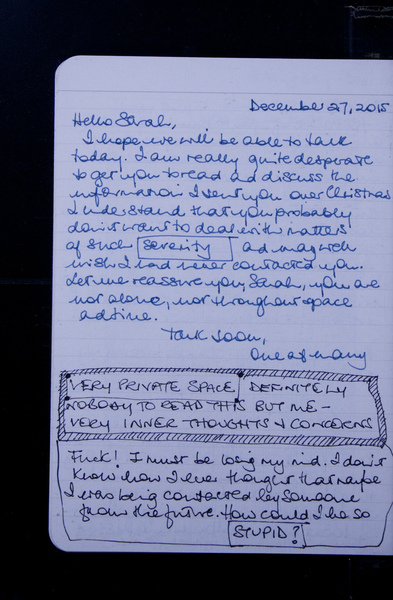 December 27, 2015
Hello Sarah,
I hope we will be able to talk
today. I am really quite desperate
to get you to read and discuss the
information I sent you over Christmas
I understand that you probably
don't want to deal with matters
of such severity and may well
wish I had never contacted you.
Let me reassure you, Sarah, you are
not alone, not throughout space
and time.
Talk soon,
One of many
VERY PRIVATE SPACE DEFINITELY
NOBODY TO READ THIS BUT ME -
VERY INNER THOUGHTS & CONCERNS
Fuck! I must be losing my mind. I don't
know how I ever thought that maybe
I was being contacted by someone
from the future. How could I be so
STUPID?